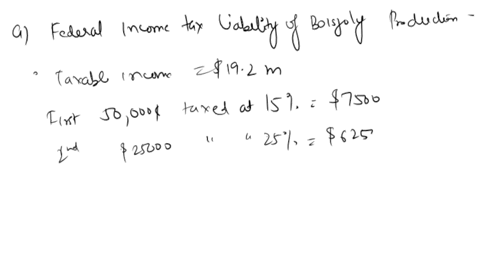 a) Federal Income tax Liability of Boisjoly Production -
Taxable income = $19.2 m
First 50,000$ taxed at 15% = $7500
2nd $25000 " " 25% = $625